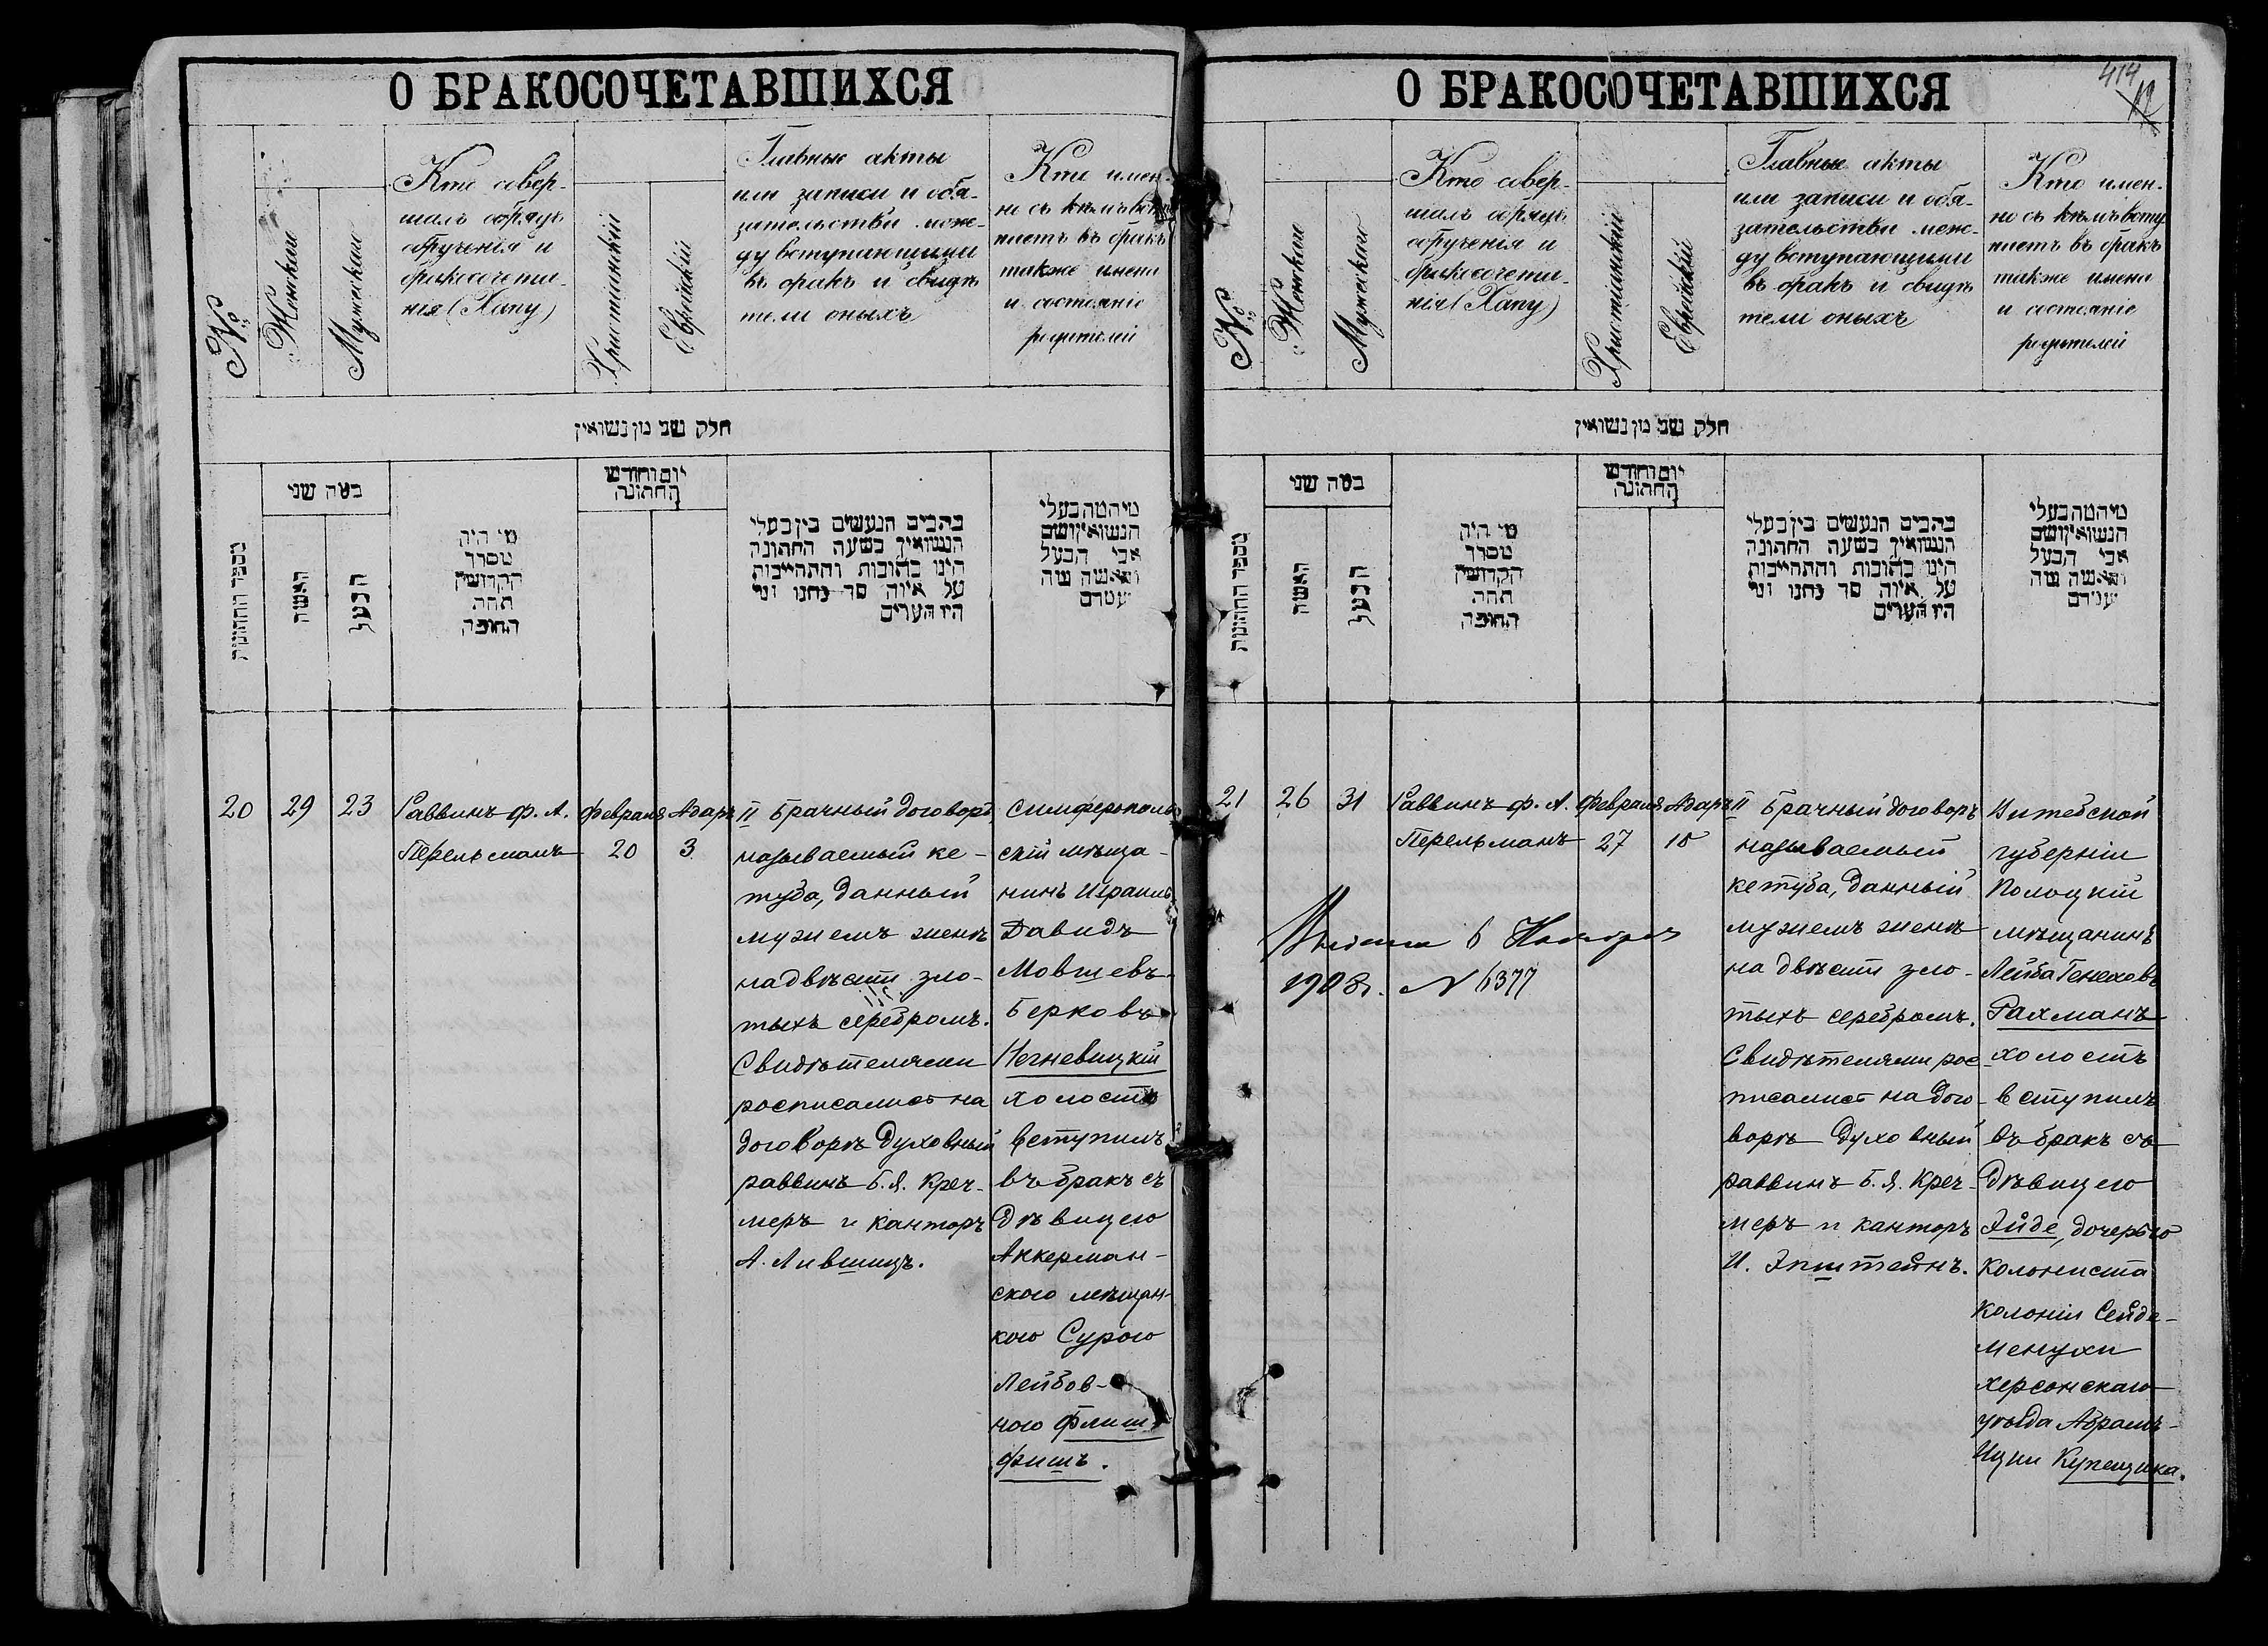 О БРАКОСОЧЕТАВШИХСЯ
№
Женскаго
Мужескаго
Кто совер-
шалъ обрядъ
обрученія и
бракосочета-
нія (Хупу)
Христіанскій
Еврейскій
Главные акты
или записи и обя-
зательства меж-
ду вступающими
въ бракъ и свидѣ
тели оныхъ
Кто имен-
но съ кѣмъ всту
паетъ въ бракъ
также имена
и состояніе
родителей
חלק שני מן נשואין
מספר החתונות
כמה שני
האשה
הבעל
מי היה
מסדר
הקדושין
תחת
החופה
יום וחודש
החתונה
כתבים הנעשים בין בעלי
הנשואין בשעת החתונה
היינו כתובות והתחייבות
על איזה סך נתנו ומי
היו העדים
מי המה בעלי
הנשואין ושם
אבי הבעל
והאשה מה
עמדם
20
29
23
Раввинъ Ф. А.
Перельманъ
Февраля
20
Адаръ II
3
Брачный договоръ,
называемый ке-
туба, данный
мужемъ женѣ
на двѣсти зло-
тыхъ серебромъ.
Свидѣтелями
росписались на
договорѣ духовный
раввинъ Б. Я. Креч-
меръ и канторъ
А. Лившицъ.
Симферополь
скій мѣща-
нинъ Израиль
Давидъ
Мовшевъ-
Берковъ
Негневицкій
холостъ
вступилъ
въ бракъ съ
дѣвицею
Аккерман-
скою мѣщан-
кою Сурою
Лейбов-
ною Флиш
фишъ.
О БРАКОСОЧЕТАВШИХСЯ
414
12
№
Женскаго
Мужескаго
Кто совер-
шалъ обрядъ
обрученія и
бракосочета-
нія (Хупу)
Христіанскій
Еврейскій
Главные акты
или записи и обя-
зательства меж-
ду вступающими
въ бракъ и свидѣ
тели оныхъ
Кто имен-
но съ кѣмъ всту
паетъ въ бракъ
также имена
и состояніе
родителей
חלק שני מן נשואין
מספר החתונות
כמה שני
האשה
הבעל
מי היה
מסדר
הקדושין
תחת
החופה
יום וחודש
החתונה
כתבים הנעשים בין בעלי
הנשואין בשעת החתונה
היינו כתובות והתחייבות
על איזה סך נתנו ומי
היו העדים
מי המה בעלי
הנשואין ושם
אבי הבעל
והאשה מה
עמדם
21
26
31
Раввинъ Ф. А.
Перельманъ
Февраля
27
Адаръ II
10
Брачный договоръ
называемый
кетуба, данный
мужемъ женѣ
на двѣсти зло-
тыхъ серебромъ.
Свидѣтелями рос-
писались на дого-
ворѣ духовный
раввинъ Б. Я. Креч-
меръ и канторъ
И. Эпштейнъ.
Витебской
губерніи
Полоцкій
мѣщанинъ
Лейба Генеховъ
Рахманъ
холостъ
вступилъ
въ бракъ съ
дѣвицею
Эйде, дочерью
колониста
колоніи Сейде-
менухи
херсонскаго
уѣзда Абрамъ-
Ицки Купещика.
6 Ноября
1908г. N 6377